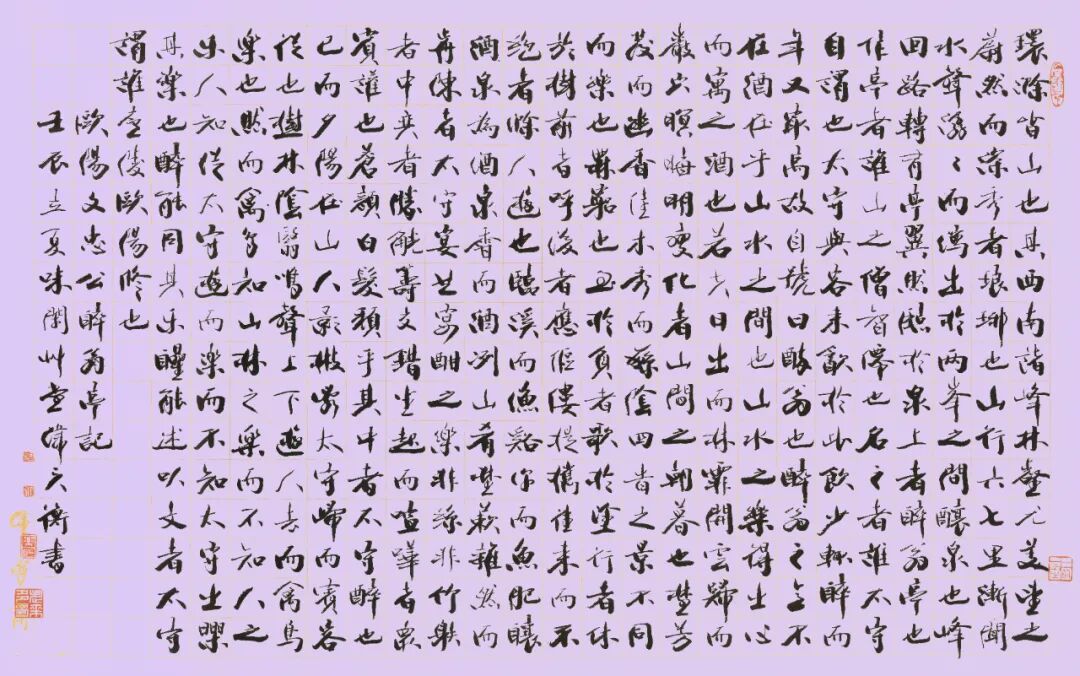 環滁皆山也其西南諸峰林壑尤美望之
蔚然而深秀者琅琊也山行六七里漸聞
水聲潺〻而瀉出於兩峯之間釀泉也峰
回路轉有亭翼然臨於泉上者醉翁亭也
作亭者誰山之僧智僊也名之者誰太守
自謂也太守與客來飲於此飲少輒醉而
年又最高故自號曰醉翁也醉翁之意不
在酒在乎山水之間也山水之樂得之心
而寓之酒也若夫日出而林霏開雲歸而
巖穴暝晦明變化者山間之朝暮也野芳
發而幽香佳木秀而繁陰四時之景不同
而樂也無窮也至於負者歌於塗行者休
於樹前者呼後者應傴僂提攜往來而不
絕者滁人遊也臨溪而漁谿深而魚肥釀
酒泉為酒泉香而酒冽山肴野蔌雜然而
前陳者太守宴也宴酣之樂非絲非竹射
者中弈者勝觥籌交錯坐起而諠譁者衆
賓讙也蒼顏白髮頹乎其中者太守醉也
已而夕陽在山人影散亂太守歸而賓客
從也樹林陰翳鳴聲上下遊人去而禽鳥
樂也然而禽鳥知山林之樂而不知人之
乐人知從太守遊而樂而不知太守之樂
其樂也醉能同其乐醒能述以文者太守
謂誰廬陵歐陽修也
歐陽文忠公醉翁亭記
壬辰立夏味閑艸堂偉衡書